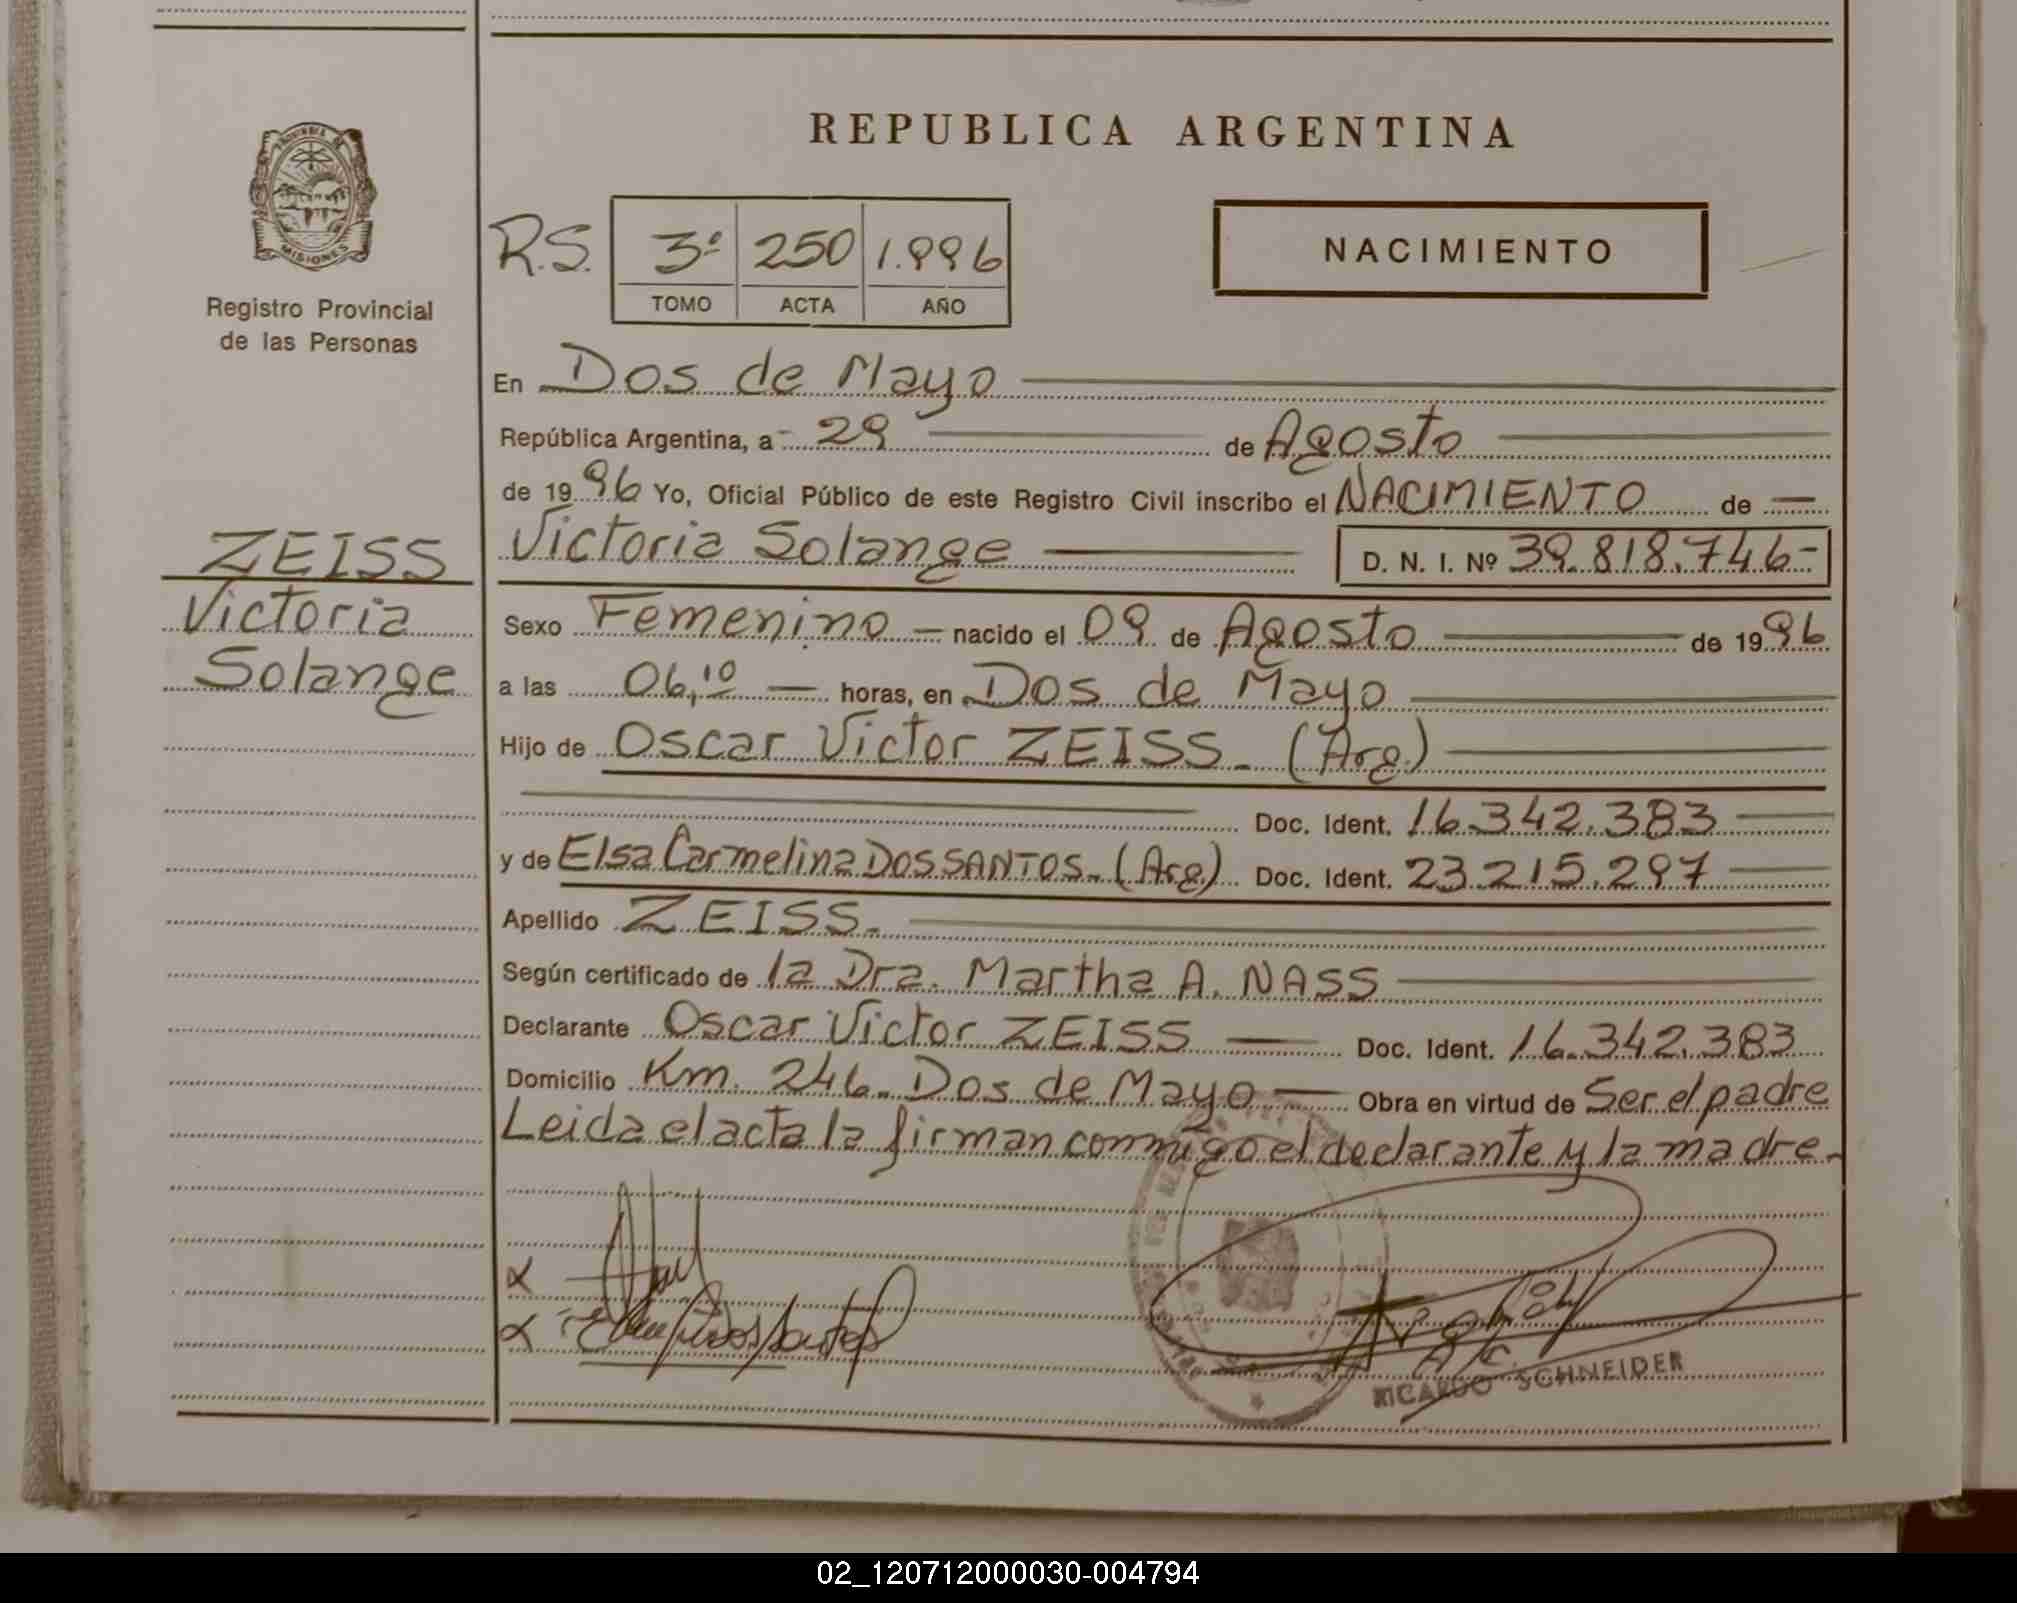 PROVINCIA DE
MISIONES
Registro Provincial
de las Personas
ZEISS
Victoria
Solange
REPUBLICA ARGENTINA
R.S. 3º 250 1.996
TOMO ACTA AÑO
NACIMIENTO
En Dos de Mayo
República Argentina, a 29 de Agosto
de 1996 Yo, Oficial Público de este Registro Civil inscribo el NACIMIENTO de
Victoria Solange D. N. I. Nº 39.818.746-
Sexo Femenino nacido el 09 de Agosto de 1996
a las 06,10 horas, en Dos de Mayo
Hijo de Oscar Victor ZEISS. (Arg)
Doc. Ident. 16.342.383
y de Elsa Carmelina DOS SANTOS. (Arg) Doc. Ident. 23.215.297
Apellido ZEISS.
Según certificado de la Dra. Martha A. NASS
Declarante Oscar Victor ZEISS Doc. Ident. 16.342.383
Domicilio Km. 246. Dos de Mayo Obra en virtud de Ser el padre
Leida el acta la firman conmigo el declarante y la madre.
RICARDO SCHNEIDER
02_120712000030-004794